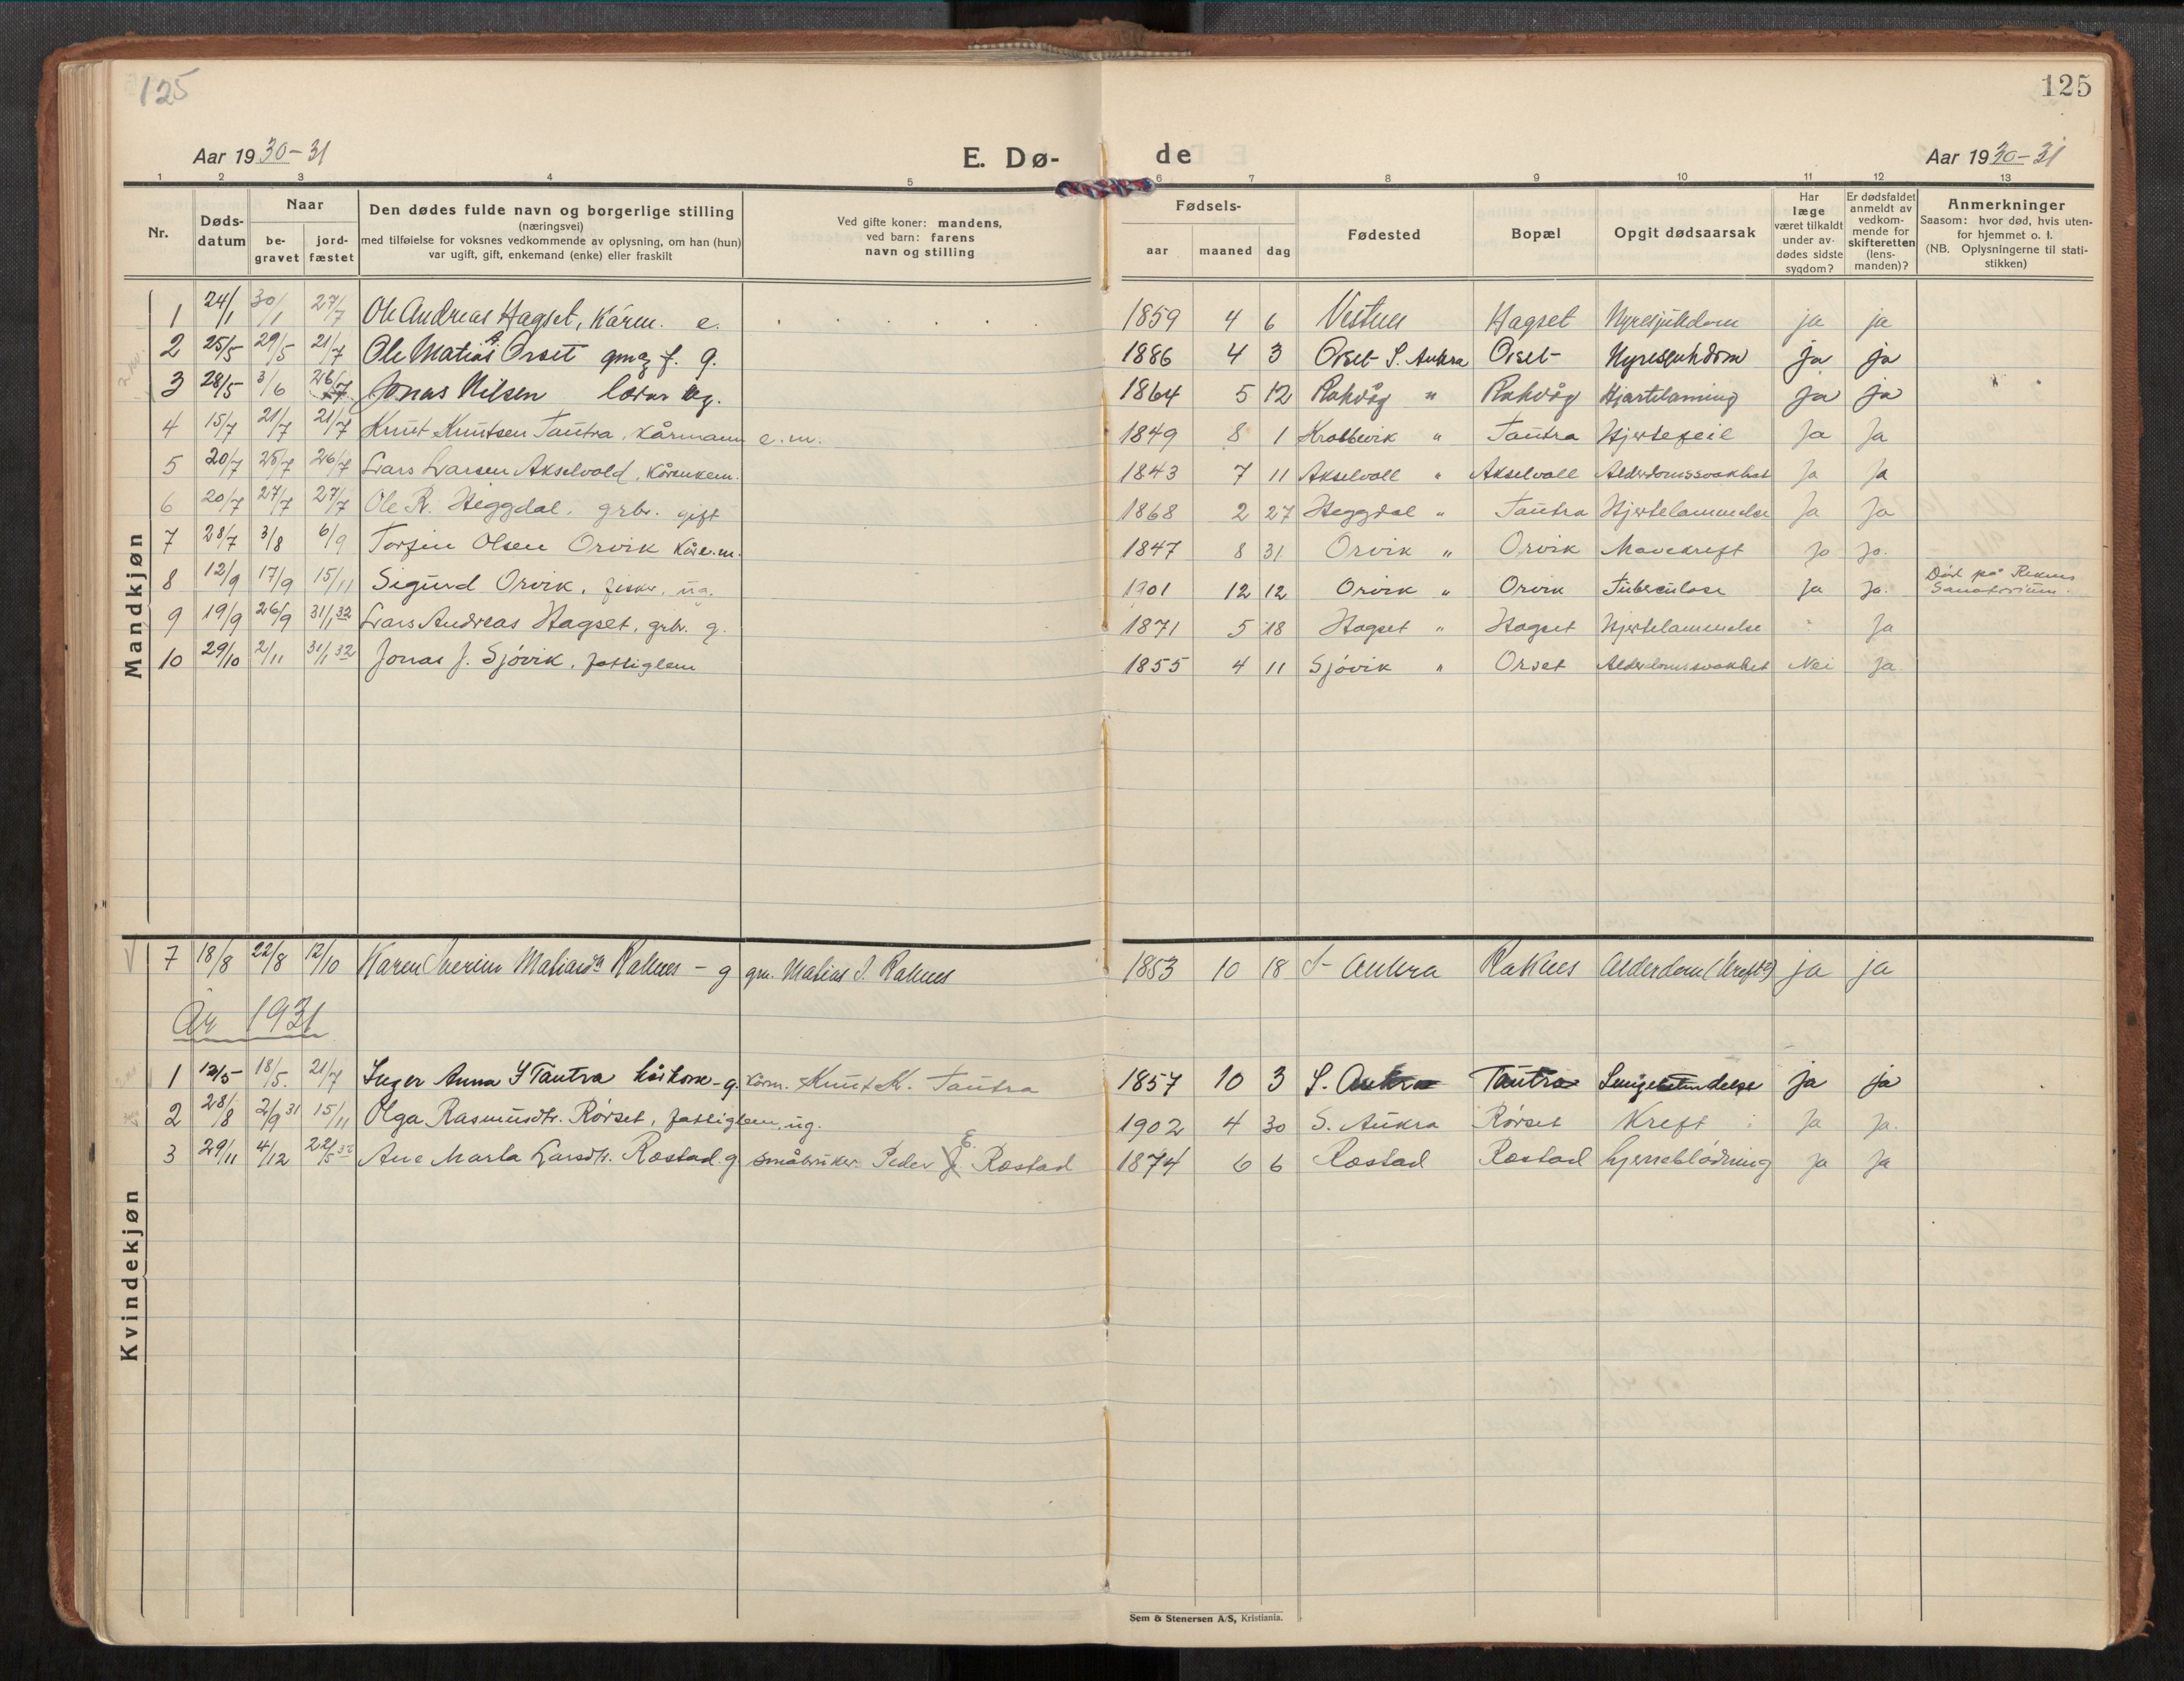 125
125
Aar 1930-31
E. Dø-
de
Aar 1930-31
1 2 3 4 5 6 7 8 9 10 11 12 13
Nr.
Døds-
datum
Naar
be-
gravet
jord-
fæstet
Den dødes fulde navn og borgerlige stilling
(næringsvei)
med tilføielse for voksnes vedkommende av oplysning, om han (hun)
var ugift, gift, enkemand (enke) eller fraskilt
Ved gifte koner: mandens,
ved barn: farens
navn og stilling
Fødsels-
aar maaned dag
Fødested
Bopæl
Opgit dødsaarsak
Har
læge
været tilkaldt
under av-
dødes sidste
sygdom?
Er dødsfaldet
anmeldt av
vedkom-
mende for
skifteretten
(lens-
manden)?
Anmerkninger
Saasom: hvor død, hvis uten-
for hjemmet o. l.
(NB. Oplysningerne til stati-
stikken)
Mandkjøn
1 24/1 30/1 27/7 Ole Andreas Hagset, Kårm. e. 1859 4 6 Vestnes Hagset Nyresjukdom ja ja
2 25/5 29/5 21/7 Ole Matias A. Orset gmag f. g. 1886 4 3 Orset S. Aukra Orset Nyresjukdom ja ja
3 28/5 3/6 26/7 Jonas Nilsen lærar ug. 1864 5 12 Rakvåg " Rakvåg Hjartelaming ja ja
4 15/7 21/7 21/7 Knut Knutsen Tautra, kårmann e.m. 1849 8 1 Krabbevik " Tautra Hjertefeil Ja Ja
5 20/7 25/7 26/7 Lars Larsen Akselvold, kårenkem. 1843 7 11 Akselvoll " Akselvoll Alderdomssvakhet Ja Ja
6 20/7 27/7 27/7 Ole R. Heggdal, grbr. gift 1868 2 27 Heggdal " Tautra Hjertelammelse Ja Ja
7 28/7 3/8 6/9 Torfin Olsen Orvik kåre.m. 1847 8 31 Orvik " Orvik Mavekreft Ja Ja.
8 12/9 17/9 15/11 Sigurd Orvik, fisker, ug. 1901 12 12 Orvik " Orvik Tuberculose Ja Ja. Død på Reknes
Sanatorium.
9 19/9 26/9 31/1 32 Lars Andreas Hagset, grbr. g. 1871 5 18 Hagset " Hagset Hjertelammelse " Ja
10 29/10 2/11 31/1 32 Jonas J. Sjøvik, fattiglem 1855 4 11 Sjøvik " Orset Alderdomssvakhet Nei Ja
Kvindekjøn
7 18/8 22/8 12/10 Karen Iverine Matiasdtr Raknes - g gm. Matias I. Raknes 1853 10 18 S- Aukra Raknes Alderdom (Kreft?) ja ja
År 1931
1 12/5 18/5. 21/7 Inger Anna I Tautra kårkone - g. kårm. Knut K. Tautra 1857 10 3 S. Aukra Tautra Lungebetendelse ja ja
2 28/8 2/9 31 15/11 Olga Rasmusdtr. Rørset, fattiglem, ug. 1902 4 30 S. Aukra Rørset Kreft Ja Ja.
3 29/11 4/12 22/5 32 Ane Marta Larsdtr. Røstad. g småbruker Peder E. Røstad 1874 6 6 Røstad Røstad hjerneblødning Ja Ja
Sem & Stenersen A/S, Kristiania.